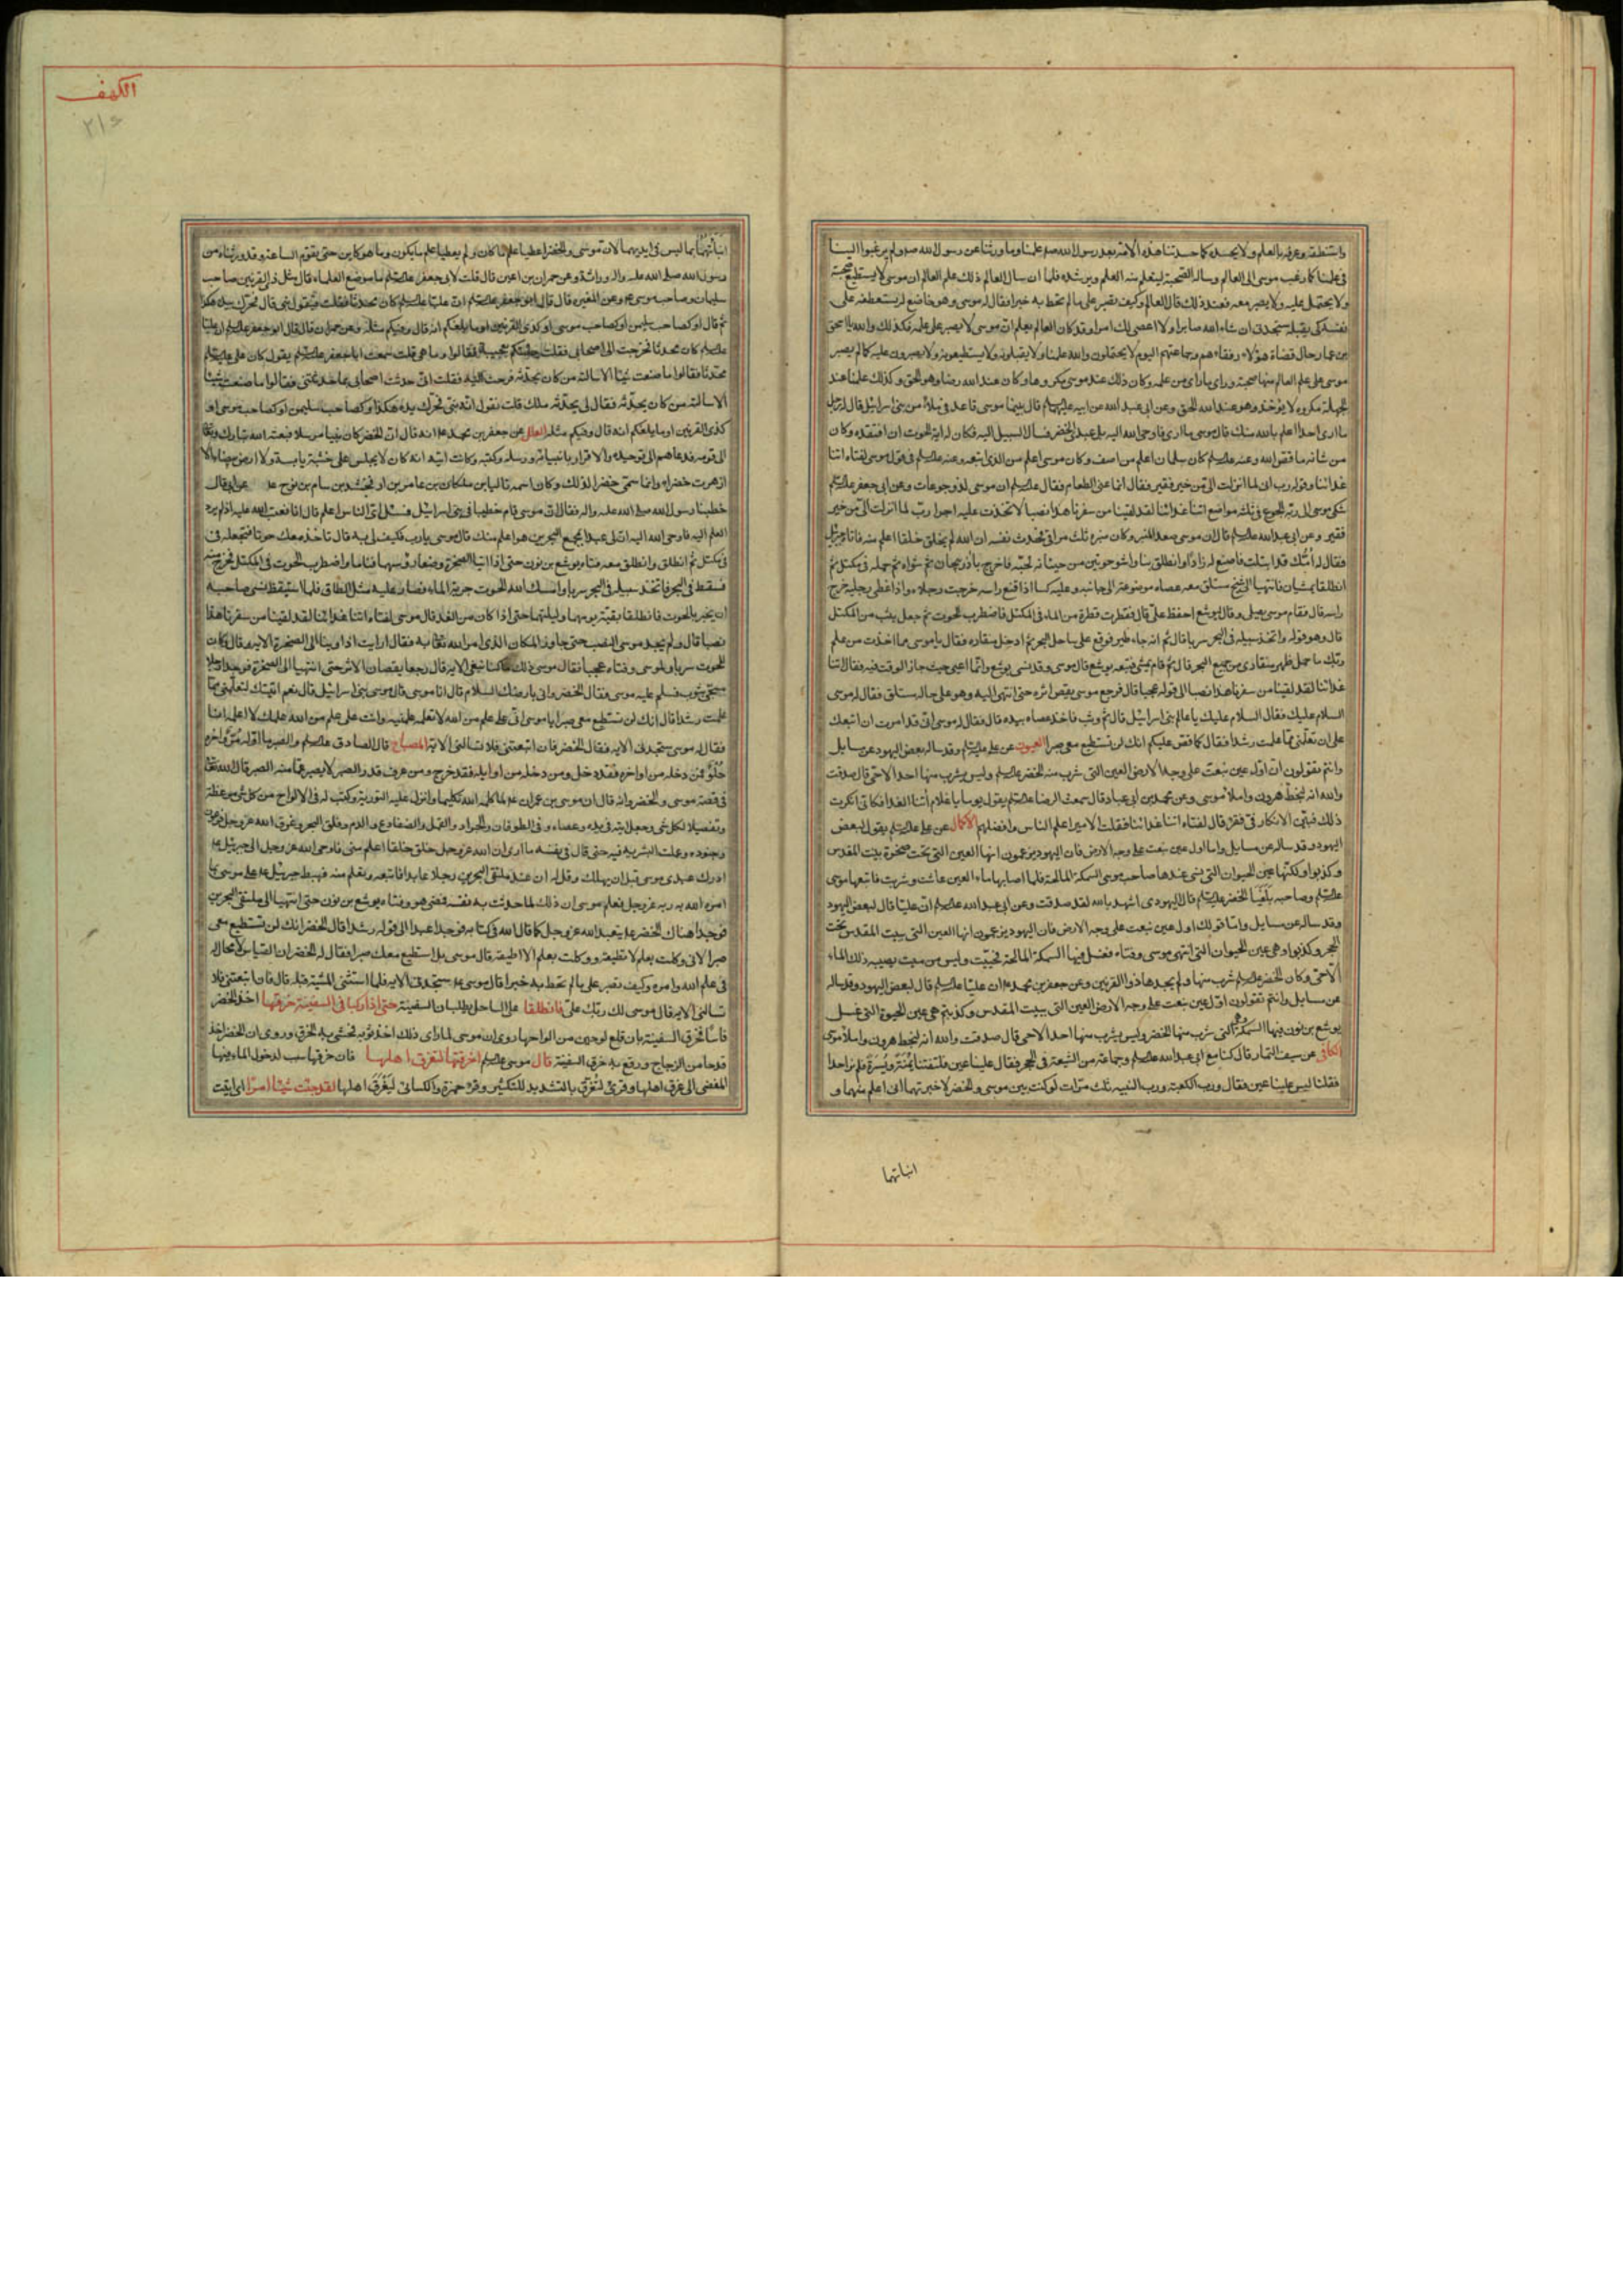 واستنطقه وعرفه بالعلم ولا يحسده كما حسدتنا هذه الامة بعد رسول الله صم علمنا وما ورثنا عن رسول الله صم ولم يرغبوا الينا
فى علمنا كما رغب موسى الى العالم وساله الصحبة ليتعلم منه العلم ويرشده فلما ان سال العالم ذلك علم العالم ان موسى لا يستطيع صحبته
ولا يحتمل عليه ولا يصبر معه فعند ذلك قال العالم وكيف تصبر على ما لم تحط به خبرا فقال له موسى وهو خاضع له يستعطفه على
نفسه كى يقبله ستجدنى ان شاء الله صابرا ولا اعصى لك امرا وقد كان العالم يعلم ان موسى لا يصبر على علمه فكذلك والله يا اسحق
بن عمار حال قضاة هؤلاء وفقهاءهم وجماعتهم اليوم لا يحتملون والله علمنا ولا يقبلونه ولا يستطيعونه ولا يصبرون عليه كما لم يصبر
موسى على علم العالم حين صحبه وراى ما راى من علمه وكان ذلك عند موسى مكروها وكان عند الله رضا وهو الحق وكذلك علمنا عند
الجهلة مكروه لا يؤخذ وهو عند الله الحق وعن ابى عبد الله عن ابيه عليهما السلام قال بينما موسى قاعد فى ملاء من بنى اسرائيل قال له رجل
ما ارى احدا اعلم بالله منك قال موسى ما ارى فاوحى الله اليه بلى عبدى الخضر فسال السبيل اليه فكان له اية الحوت ان افتقده وكان
من شانه ما قص الله وعنه عليه السلم كان سليمان اعلم من اصف وكان موسى اعلم من الذى اتبعه وعنه عليه السلم فى قول موسى لفتاه اتنا
غدائنا وقوله رب انى لما انزلت الى من خير فقير فقال انما عنى الطعام فقال عليه السلم ان موسى لذو جوعات وعن ابى جعفر عليه السلم
شكى موسى الى ربه الجوع فى ثلثة مواضع اتنا غدائنا لقد لقينا من سفرنا هذا نصبا لاتخذت عليه اجرا رب لما انزلت الى من خير
فقير وعن ابى عبد الله عليه السلم قال ان موسى صعد المنبر وكان منبره ثلث مراق فحدث نفسه ان الله لم يخلق خلقا اعلم منه فاتاه جبرئيل
فقال له انك قد ابتليت فانزل
انطلقا يمشيان فانتهيا الى شيخ مستلق معه عصاه موضوعة الى جانبه وعليه كسا اذا قنع راسه خرجت رجلاه واذا غطى رجليه خرج
راسه قال فقام موسى يصلى وقال ليوشع احفظ على قال فقطرت قطرة من الماء فى المكتل فاضطرب الحوت ثم جعل يثب من المكتل
قال وهو قوله واتخذ سبيله فى البحر سربا قال ثم انه جاء طير فوقع على ساحل البحر ثم ادخل منقاره فقال يا موسى ما اخذت من علم
ربك ما حمل ظهر منقارى من جميع البحر قال ثم قام يمشى فتبعه يوشع قال موسى وقد نسى يوشع وانما اعيى حيث جاز الوقت فيه فقال اتنا
غدائنا لقد لقينا من سفرنا هذا نصبا الى قوله عجبا قال فرجع موسى يقص اثره حتى انتهى اليه وهو على حاله مستلق فقال له موسى
السلام عليك فقال السلام عليك يا عالم بنى اسرائيل قال ثم وثب فاخذ عصاه بيده قال فقال له موسى انى قد امرت ان اتبعك
على ان تعلمنى مما علمت رشدا فقال كما قص عليكم انك لن تستطيع معى صبرا العيون عن على عليه السلم وقد ساله بعض اليهود عن مسايل
وانتم تقولون ان اول عين نبعت على وجه الارض العين التى شرب منه الخضر عليه السلم وليس يشرب منها احد الا حى قال صدقت
والله انه لبخط هرون واملاء موسى وعن محمد بن ابى عباد قال سمعت الرضا عليه السلم يقول يوما يا غلام اتنا الغدا فكانى انكرت
ذلك فتبين الانكار فى فقرء قال لفتاه اتنا غدائنا فقلت الامير اعلم الناس وافضلهم الاكمال عن على عليه السلم يقول لبعض
اليهود وقد ساله عن مسايل واما اول عين نبعت على وجه الارض فان اليهود يزعمون انها العين التى تحت صخرة بيت المقدس
وكذبوا ولكنها عين الحيوان التى نسى عندها صاحب موسى السمكة المالحة فلما اصابها ماء العين عاشت وشربت فاتبعها موسى
عليه السلم وصاحبه فلقيا الخضر عليه السلم قال اليهودى اشهد بالله لقد صدقت وعن ابى عبد الله عليه السلم ان عليا قال لبعض اليهود
وقد ساله عن مسايل واما قولك اول عين نبعت على وجه الارض فان اليهود يزعمون انها العين التى ببيت المقدس تحت
الحجر وكذبوا وهى عين الحيوان التى انتهى موسى وفتاه فغسل فيها السمكة المالحة فحييت وليس من ميت يصيبه ذلك الماء
الا حى وكان الخضر عليه السلم شرب منها ولم يجدها ذو القرنين وعن جعفر بن محمد ع ان عليا عليه السلم قال لبعض اليهود وقد ساله
عن مسايل وانتم تقولون اول عين نبعت على وجه الارض العين التى ببيت المقدس وكذبتم هى عين الحيوة التى غسل
يوشع بن نون فيها السمكة وهى التى شرب منها الخضر وليس يشرب منها احد الا حى قال صدقت والله انه لبخط هرون واملاء موسى
الكافى عن سيف التمار قال كنا مع ابى عبد الله عليه السلم وجماعة من الشيعة فى الحجر فقال علينا عين فلتفتنا يمنة ويسرة فلم نر احدا
فقلنا ليس علينا عين فقال ورب الكعبة ورب البنية ثلث مرات لو كنت بين موسى والخضر لاخبرتهما انى اعلم منهما و
انباتهما
الكهف
٢١٤
انباتهما بما ليس فى ايديهما لان موسى والخضر اعطيا علم ما كان ولم يعطيا علم ما يكون وما هو كاين حتى تقوم الساعة وقد ورثناه من
رسول الله صلى الله عليه واله وراثة وعن حمران بن اعين قال قلت لابى جعفر عليه السلم ما موضع العلماء قال مثل ذى القرنين وصاحب
سليمان وصاحب موسى
ثم قال او كصاحب سليمن او كصاحب موسى او كذى القرنين او ما بلغكم انه قال وفيكم مثله وعن حمران قال قال ابو جعفر عليه السلم ان عليا
عليه السلم كان محدثا فخرجت الى اصحابى فقلت جئتكم بعجيبة فقالوا وما هى قلت سمعت ابا جعفر عليه السلم يقول كان على عليه السلم
محدثا فقالوا ما صنعت شيئا الا سالته من كان يحدثه فرجعت اليه فقلت انى حدثت اصحابى بما حدثتنى فقالوا ما صنعت شيئا
الا سالته من كان يحدثه فقال لى يحدثه ملك قلت تقول انه نبى فحرك يده هكذا او كصاحب سليمن او كصاحب موسى او
كذى القرنين او ما بلغكم انه قال وفيكم مثله العلل عن جعفر بن محمد ع انه قال ان الخضر كان نبيا مرسلا فبعثه الله تبارك وتعا
الى قومه فدعاهم الى توحيده والاقرار بانبيائه ورسله وكتبه وكانت ايته انه كان لا يجلس على خشبة يابسة ولا ارض بيضاء الا
ازهرت خضراء وانما سمى خضرا لذلك وكان اسمه تاليا بن ملكان بن عامر بن ارفخشد بن سام بن نوح
خطبنا رسول الله صلى الله عليه واله فقال ان موسى قام خطيبا فى بنى اسرائيل فسئل اى الناس اعلم قال انا فعتب الله عليه اذ لم يرد
العلم اليه فاوحى الله اليه ان لى عبدا بمجمع البحرين هو اعلم منك قال موسى يا رب فكيف لى به قال تاخذ معك حوتا فتجعله فى
فى مكتل ثم انطلق وانطلق معه فتاه يوشع بن نون حتى اذا اتيا الصخرة وضعا رؤسهما فناما واضطرب الحوت فى المكتل فخرج منه
فسقط فى البحر فاتخذ سبيله فى البحر سربا وامسك الله الحوت جرية الماء فصار عليه مثل الطاق فلما استيقظ نسى صاحبه
ان يخبره بالحوت فانطلقا بقية يومهما وليلتهما حتى اذا كان من الغد قال موسى لفتاه اتنا غدائنا لقد لقينا من سفرنا هذا
نصبا قال ولم يجد موسى النصب حتى جاوز المكان الذى امر الله تعا به فقال ارايت اذ اوينا الى الصخرة الاية قال وكان
للحوت سربا ولموسى وفتاه عجبا فقال موسى ذلك ما كنا نبغى الاية قال رجعا يقصان الاثر حتى انتهيا الى الصخرة فوجدا رجلا
مسجى بثوب فسلم عليه موسى فقال الخضر وانى بارضك السلام قال انا موسى قال موسى بنى اسرائيل قال نعم اتيتك لتعلمنى مما
علمت رشدا قال انك لن تستطيع معى صبرا يا موسى انى على علم من الله لا تعلمه علمنيه وانت على علم من الله علمك لا اعلمه انا
فقال له موسى ستجدنى الاية فقال الخضر فان اتبعتنى فلا تسالنى الاية المصباح قال الصادق عليه السلم والصبر ما اوله مر واخره
حلو فمن دخله من اواخره فقد دخل ومن دخله من اوايله فقد خرج ومن عرف قدر الصبر لا يصبر عما منه الصبر قال الله تعا
فى قصة موسى والخضر وانه قال ان موسى بن عمران ع لما كلمه الله تكليما وانزل عليه التورية وكتب له فى الالواح من كل شىء موعظة
وتفصيلا لكل شى وجعل ايته فى يده وعصاه وفى الطوفان والجراد والقمل والضفادع والدم وفلق البحر وغرق الله عز وجل فرعون
وجنوده وعملت البشرية فيه حتى قال فى نفسه ما ارى ان الله عز وجل خلق خلقا اعلم منى فاوحى الله عز وجل الى جبرئيل ع
ادرك عبدى موسى قبل ان يهلك وقل له ان عند ملتقى البحرين رجلا عابدا فاتبعه وتعلم منه فهبط جبرئيل ع على موسى بما
امره الله به ربه عز وجل فعلم موسى ان ذلك لما حدثت به نفسه فمضى هو وفتاه يوشع بن نون حتى انتهيا الى ملتقى البحرين
فوجدا هناك الخضر ع يتعبد الله عز وجل كما قال الله فى كتابه فوجدا عبدا الى قوله رشدا قال الخضر انك لن تستطيع معى
صبرا لانى وكلت بعلم لا تطيقه ووكلت بعلم لا اطيقه قال موسى بل استطيع معك صبرا فقال له الخضر ان القياس لا مجال له
فى علم الله وامره وكيف تصبر على ما لم تحط به خبرا قال موسى ع ستجدنى الاية فلما استثنى المشية قبله قال فان اتبعتنى فلا
تسالنى الاية قال موسى لك ربك على فانطلقا على الساحل يطلبان السفينة حتى اذا ركبا فى السفينة خرقها اخذ الخضر
فاسا فخرق السفينة بان قلع لوحين من الواحها روى ان موسى لما راى ذلك اخذ ثوبه فحشى به الخرق وروى ان الخضر اخذ
قدحا من الزجاج ورقع به خرق السفينة قال موسى عليه السلم اخرقتها لتغرق اهلها فان خرقها سبب لدخول الماء فيها
المفضى الى غرق اهلها وقرئ لتغرق بالتشديد للتكثير وقرء حمزة والكسائى ليغرق اهلها لقد جئت شيئا امرا اى اتيت